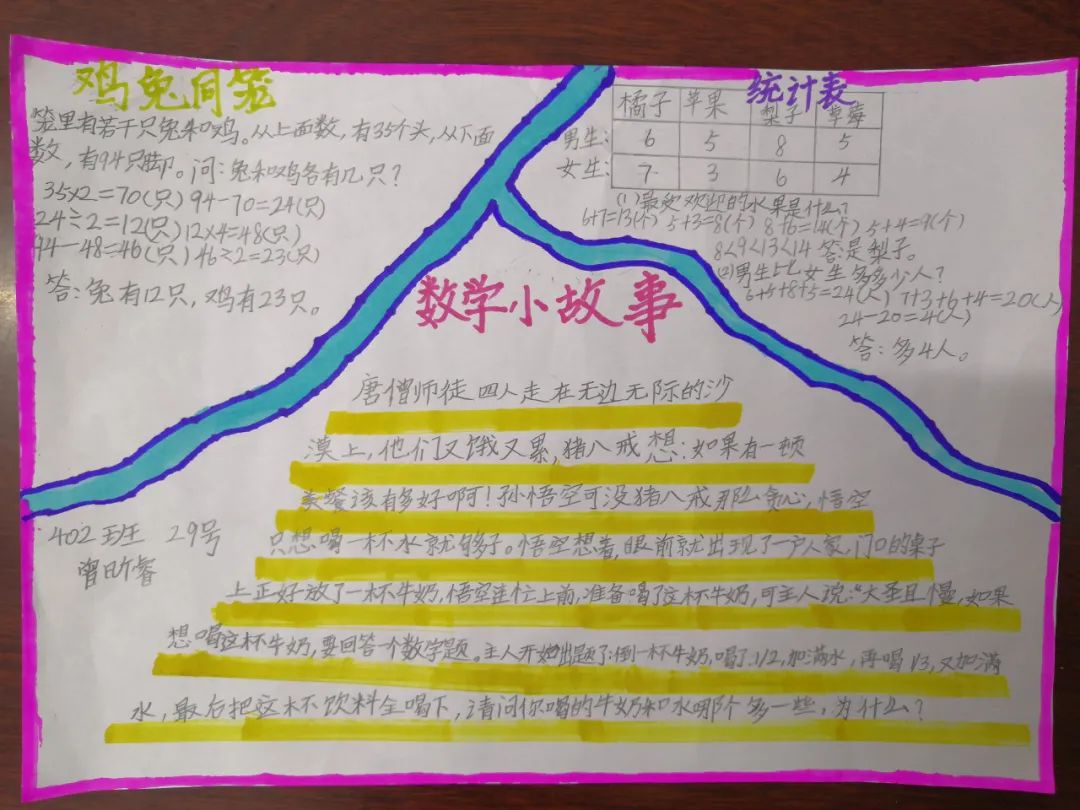 鸡兔同笼
笼里有若干只兔和鸡。从上面数,有35个头,从下面
数,有94只脚。问:兔和鸡各有几只?
35×2=70(只) 94-70=24(只)
24÷2=12(只) 12×4=48(只)
94-48=46(只) 46÷2=23(只)
答:兔有12只,鸡有23只。
统计表
橘子 苹果 梨子 草莓
男生: 6 5 8 5
女生: 7 3 6 4
(1)最受欢迎的水果是什么?
6+7=13(个) 5+3=8(个) 8+6=14(个) 5+4=9(个)
8<9<13<14 答:是梨子。
(2)男生比女生多多少人?
6+5+8+5=24(人) 7+3+6+4=20(人)
24-20=4(人)
答:多4人。
数学小故事
唐僧师徒四人走在无边无际的沙
漠上,他们又饿又累,猪八戒想:如果有一顿
美餐该有多好啊!孙悟空可没猪八戒那么贪心,悟空
只想喝一杯水就够了。悟空想着,眼前就出现了一户人家,门口的桌子
上正好放了一杯牛奶,悟空连忙上前,准备喝了这杯牛奶,可主人说:“大圣且慢,如果
想喝这杯牛奶,要回答一个数学题。主人开始出题了:倒一杯牛奶,喝了1/2,加满水,再喝1/3,又加满
水,最后把这杯饮料全喝下,请问你喝的牛奶和水哪个多一些,为什么?
402班 29号
曾昕睿